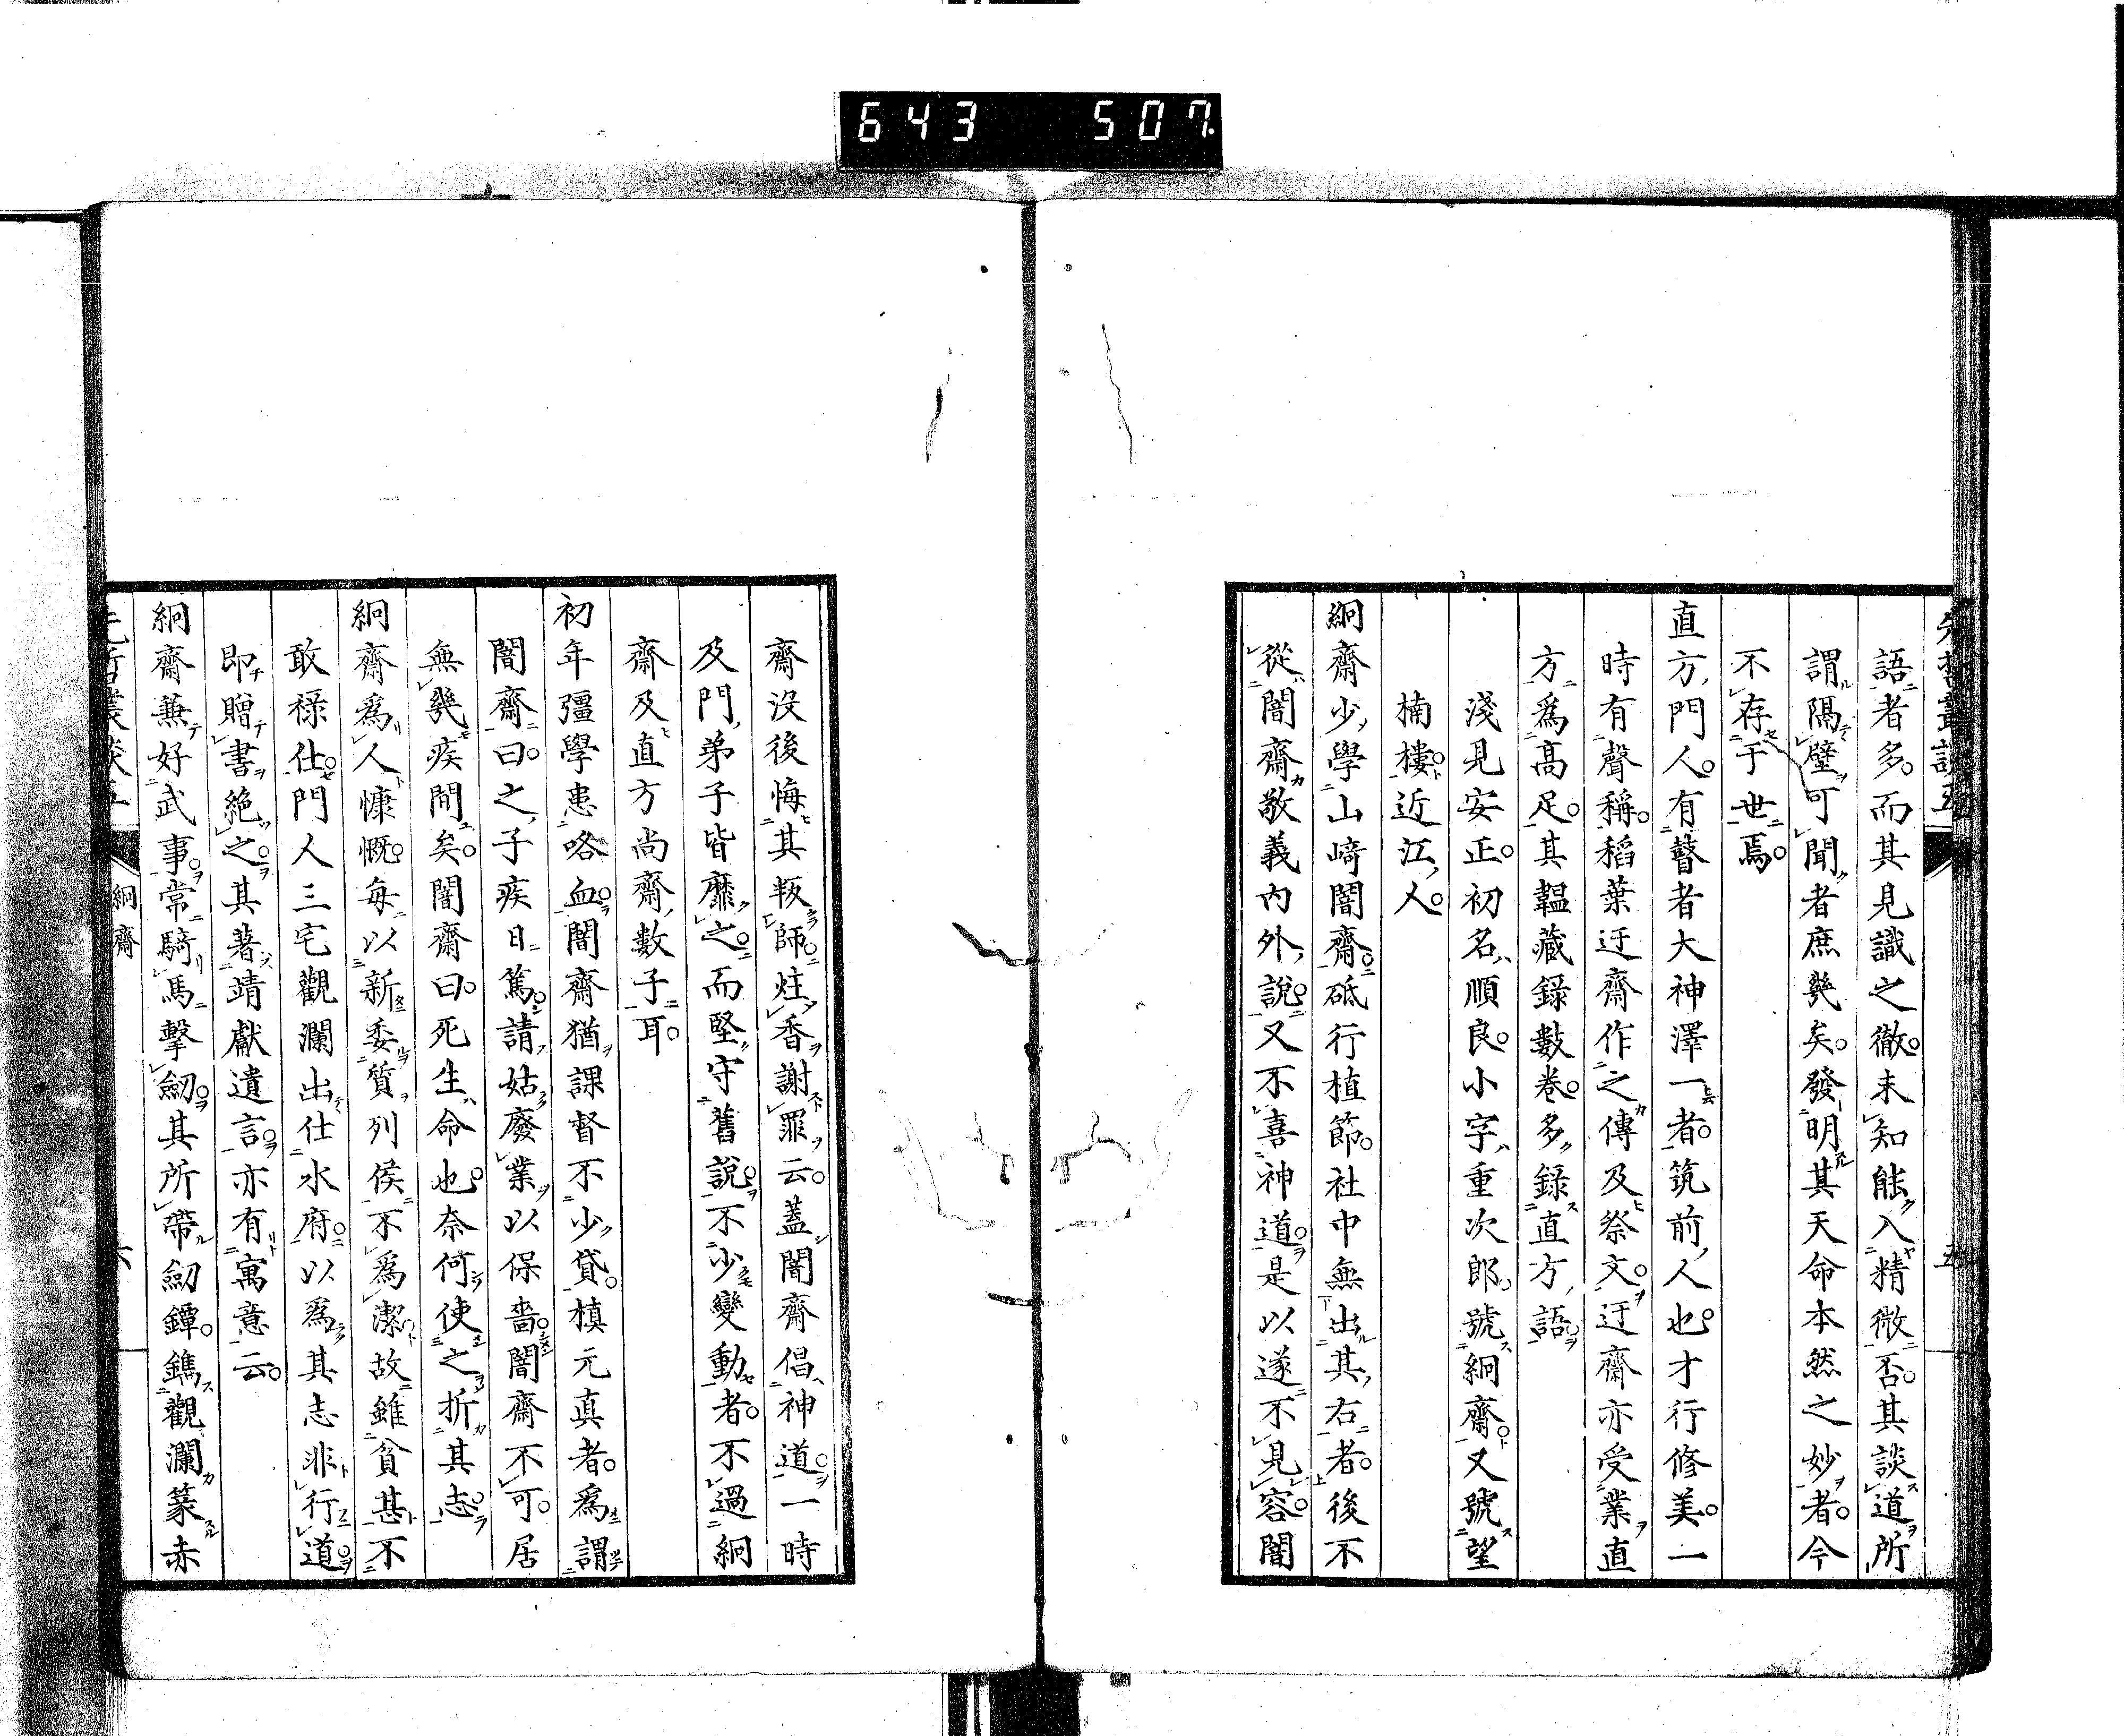 643 507
先哲叢談五
五
語者多。而其見識之徹。未知能入精微否。其談道所
謂隔壁可聞者庶幾矣。發明其天命本然之妙者。今
不存于世焉。
直方門人。有瞽者大神澤一者。筑前人也。才行修美。一
時有聲稱。稻葉迂齋作之傳及祭文。迂齋亦受業直
方爲高足。其韞藏錄數卷。多錄直方語。
淺見安正。初名順良。小字重次郎。號絅齋。又號望
楠樓。近江人。
絅齋少學山﨑闇齋。砥行植節。社中無出其右者。後不
從闇齋敬義內外說。又不喜神道。是以遂不見容。闇
齋没後悔其叛師。炷香謝罪云。蓋闇齋倡神道。一時
及門弟子皆靡之。而堅守舊說。不少變動者。不過絅
齋及直方尚齋數子耳。
初年彊學患咯血。闇齋猶課督不少貸。槙元真者。爲謂
闇齋曰。之子疾日篤。請姑廢業以保嗇。闇齋不可。居
無幾疾間矣。闇齋曰。死生命也。奈何使之折其志。
絅齋爲人慷慨。每以新委質列侯不爲潔。故雖貧甚不
敢祿仕。門人三宅觀瀾出仕水府。以爲其志非行道。
即贈書絕之。其著靖獻遺言。亦有寓意云。
絅齋兼好武事。常騎馬擊劒。其所帶劒鐔。鐫觀瀾篆赤
先哲叢談五
絅齋
六